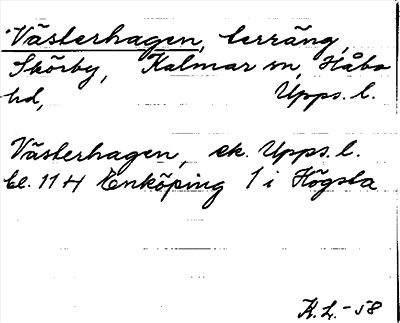 Västerhagen, terräng,
Skörby, Kalmar sn, Håbo
hd, Upps. l.
Västerhagen, ek. Upps. l.
bl. 114 Enköping 1 i Högsta
K.L. -58